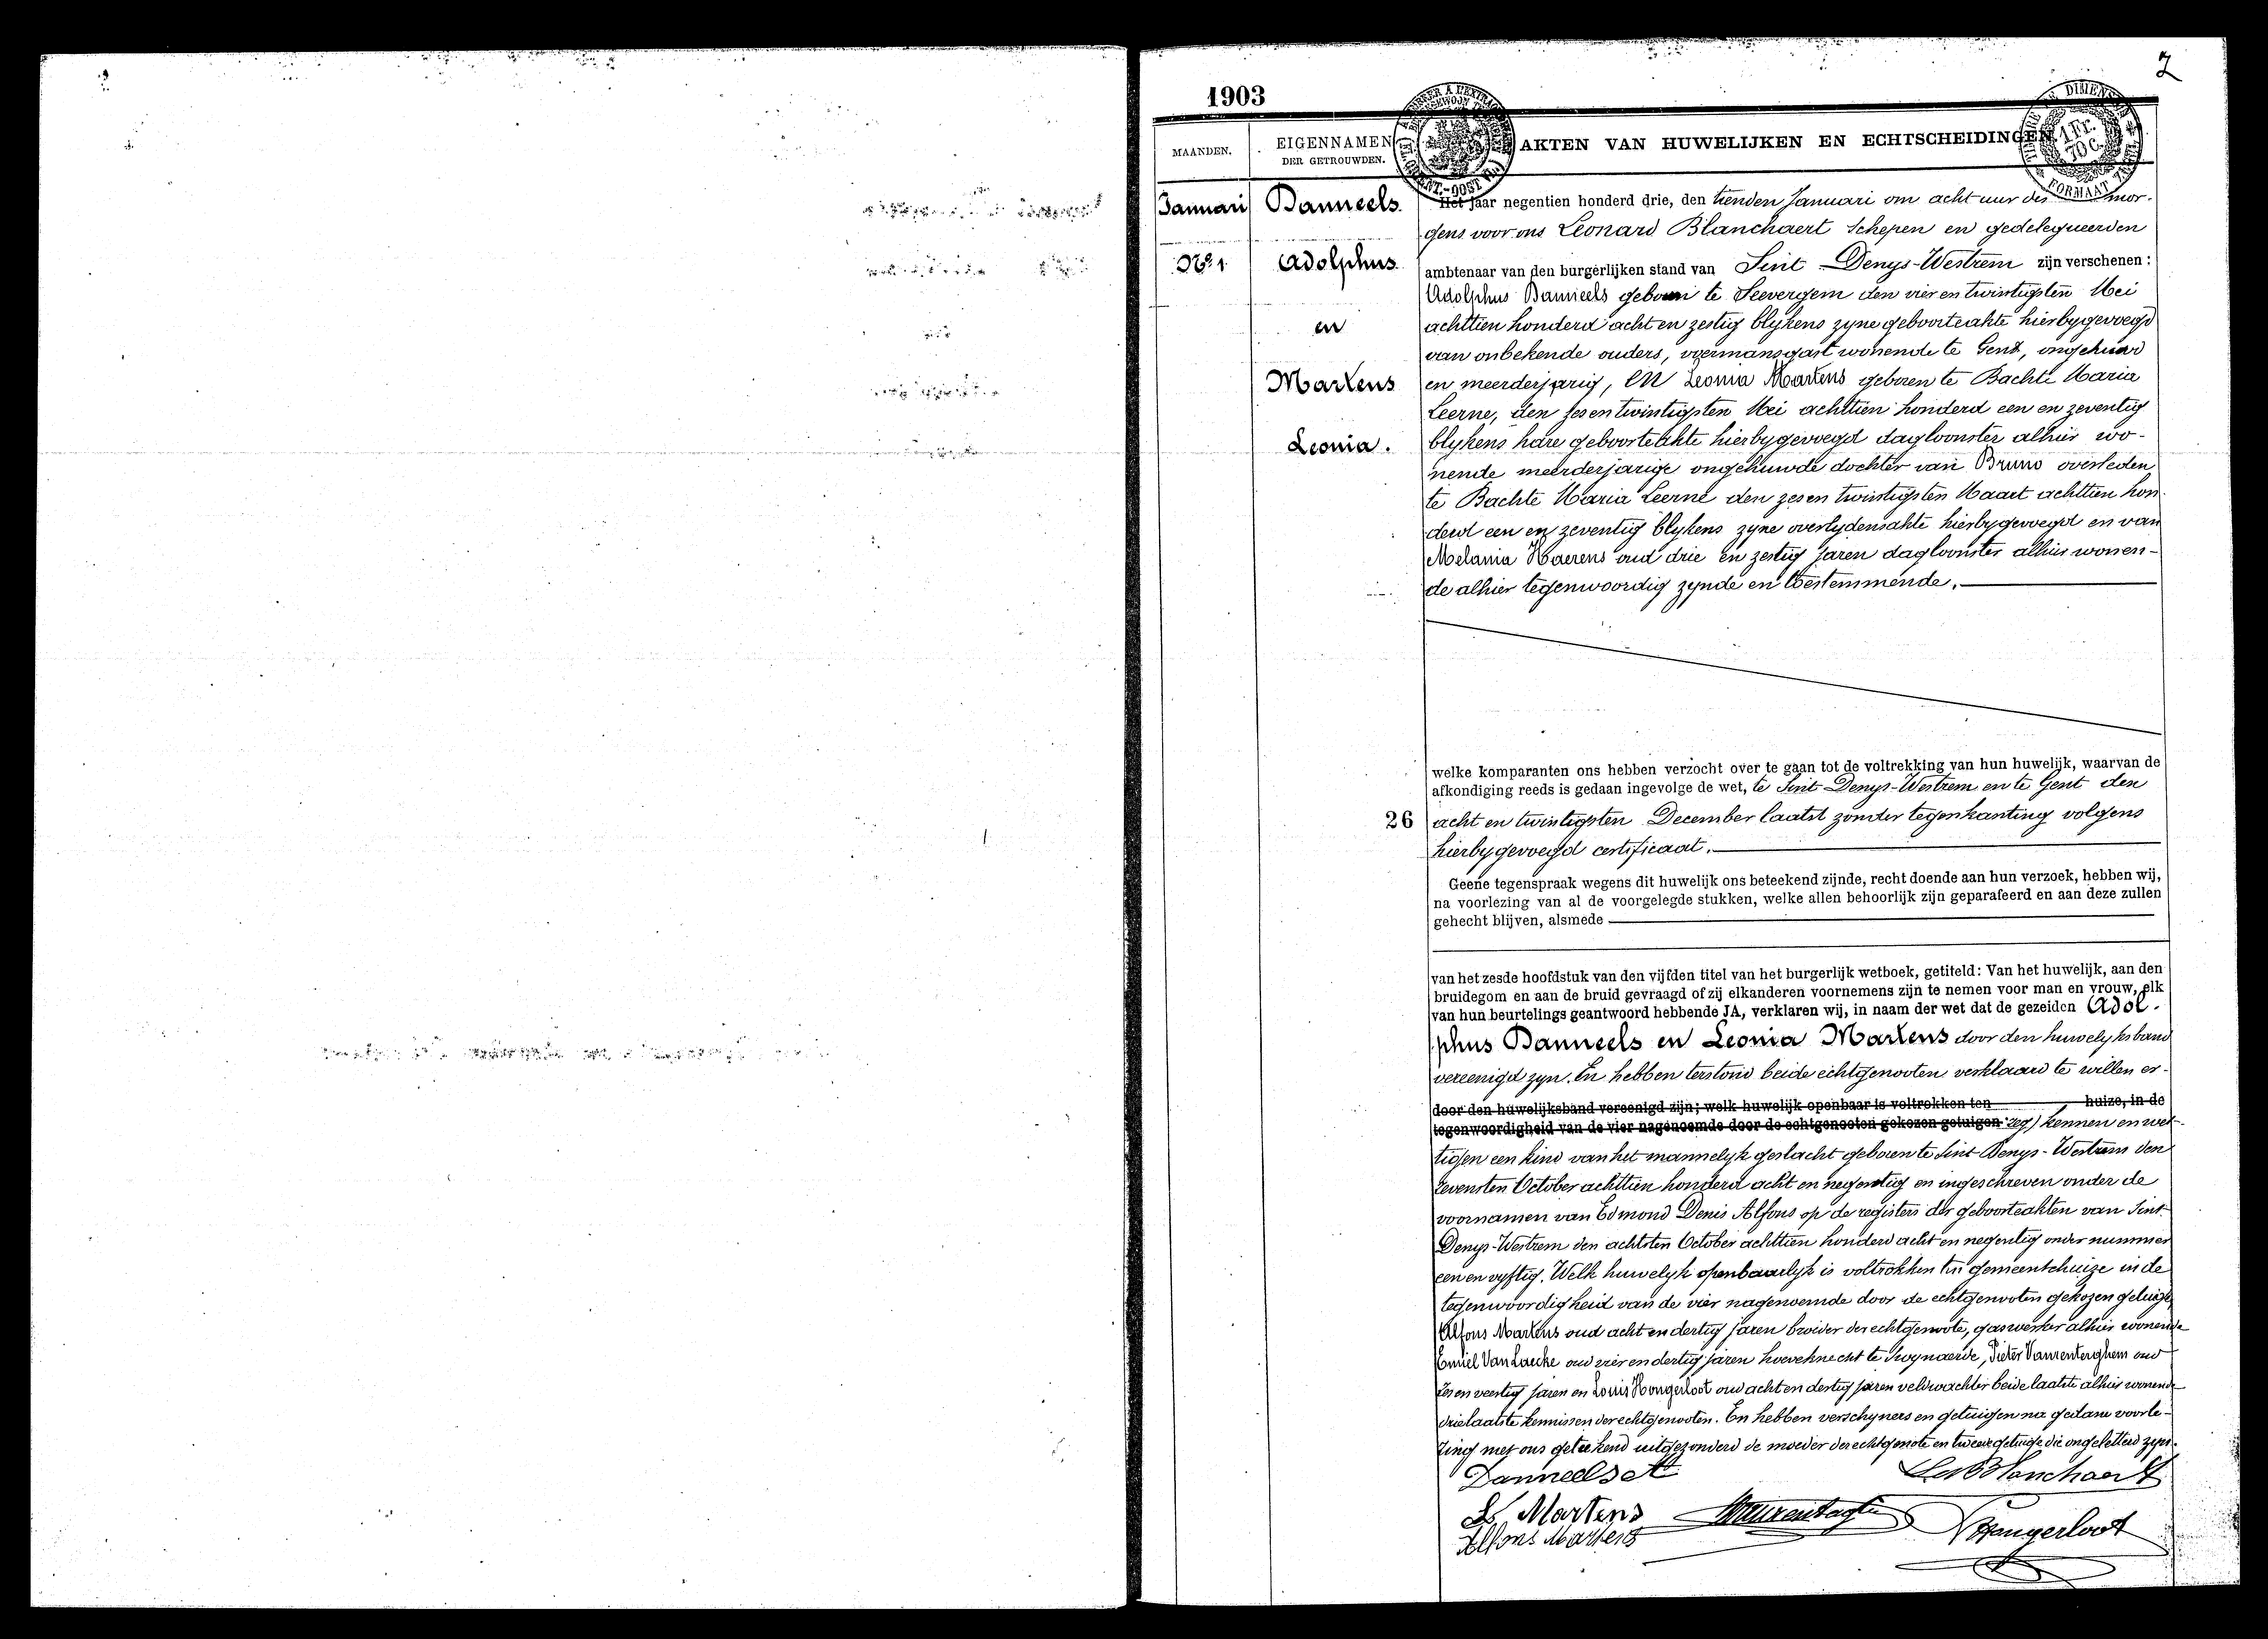 2
1903
MAANDEN.
EIGENNAMEN
DER GETROUWDEN.
AKTEN VAN HUWELIJKEN EN ECHTSCHEIDINGEN
DIMENS
1 Fr.
70 C.
FORMAAT
Januari
No. 1
Danneels
Adolphus
en
Martens
Leonia.
Het jaar negentien honderd drie, den tienden Januari om acht uur des mor-
gens voor ons Leonard Blanchaert Schepen en gedelegueerden
ambtenaar van den burgerlijken stand van Sint Denys-Westrem zijn verschenen:
Adolphus Danneels geboren te Seevergem den vier en twintigsten Mei
achttien honderd acht en zestig blykens zyne geboorteakte hierbygevoegd
van onbekende ouders, voermansgast wonende te Gent, ongehuwd
en meerderjarig, en Leonia Martens geboren te Bachte Maria
Leerne, den zes en twintigsten Mei achttien honderd een en zeventig
blykens hare geboorteakte hierbygevoegd dagloonster alhier wo-
nende meerderjarige ongehuwde dochter van Bruno overleden
te Bachte Maria Leerne den zes en twintigsten Maart achttien hon-
derd een en zeventig blykens zyne overlydensakte hierbygevoegd en van
Melania Haerens oud drie en zestig jaren dagloonster alhier wonen-
de alhier tegenwoordig zynde en toestemmende.
welke komparanten ons hebben verzocht over te gaan tot de voltrekking van hun huwelijk, waarvan de
afkondiging reeds is gedaan ingevolge de wet, te Sint Denys-Westrem en te Gent den
26 acht en twintigsten December laatst zonder tegenkanting volgens
hierbygevoegd certificaat.
Geene tegenspraak wegens dit huwelijk ons beteekend zijnde, recht doende aan hun verzoek, hebben wij,
na voorlezing van al de voorgelegde stukken, welke allen behoorlijk zijn geparafeerd en aan deze zullen
gehecht blijven, alsmede
van het zesde hoofdstuk van den vijfden titel van het burgerlijk wetboek, getiteld: Van het huwelijk, aan den
bruidegom en aan de bruid gevraagd of zij elkanderen voornemens zijn te nemen voor man en vrouw, elk
van hun beurtelings geantwoord hebbende JA, verklaren wij, in naam der wet dat de gezeiden Adol-
phus Danneels en Leonia Martens door den huwelyksband
vereenigd zyn. En hebben terstond beide echtgenooten verklaard te willen er-
door den huwelijksband vereenigd zijn; welk huwelijk openbaar is voltrokken ten huize, in de
tegenwoordigheid van de vier nagenoemde door de echtgenooten gekozen getuigen zeg) kennen en wet-
tigen een kind van het mannelyk geslacht geboren te Sint Denys-Westrem den
zevensten October achttien honderd acht en negentig en ingeschreven onder de
voornamen van Edmond Denis Alfons op de registers der geboorteakten van Sint
Denys-Westrem den achtsten October achttien honderd acht en negentig onder nummer
een en vyftig. Welk huwelyk openbaarlyk is voltrokken ten gemeentehuize in de
tegenwoordigheid van de vier nagenoemde door de echtgenooten gekozen getuigen
Alfons Martens oud acht en dertig jaren broeder der echtgenoote, gaswerker alhier wonende
Emiel Van Laecke oud vier en dertig jaren hoveknecht te Swynaerde, Pieter Vanrenterghem oud
zes en veertig jaren en Louis Hongerloot oud acht en dertig jaren veldwachter beide laatste alhier wonende
drie laatste kennissen der echtgenooten. En hebben verschyners en getuigen na gedane voorle-
zing met ons geteekend uitgezonderd de moeder der echtgenote en tweede getuige die ongeletterd zyn.
Danneels A
Leo Blanchaert
L Martens
Alfons Martens
Hongerloot